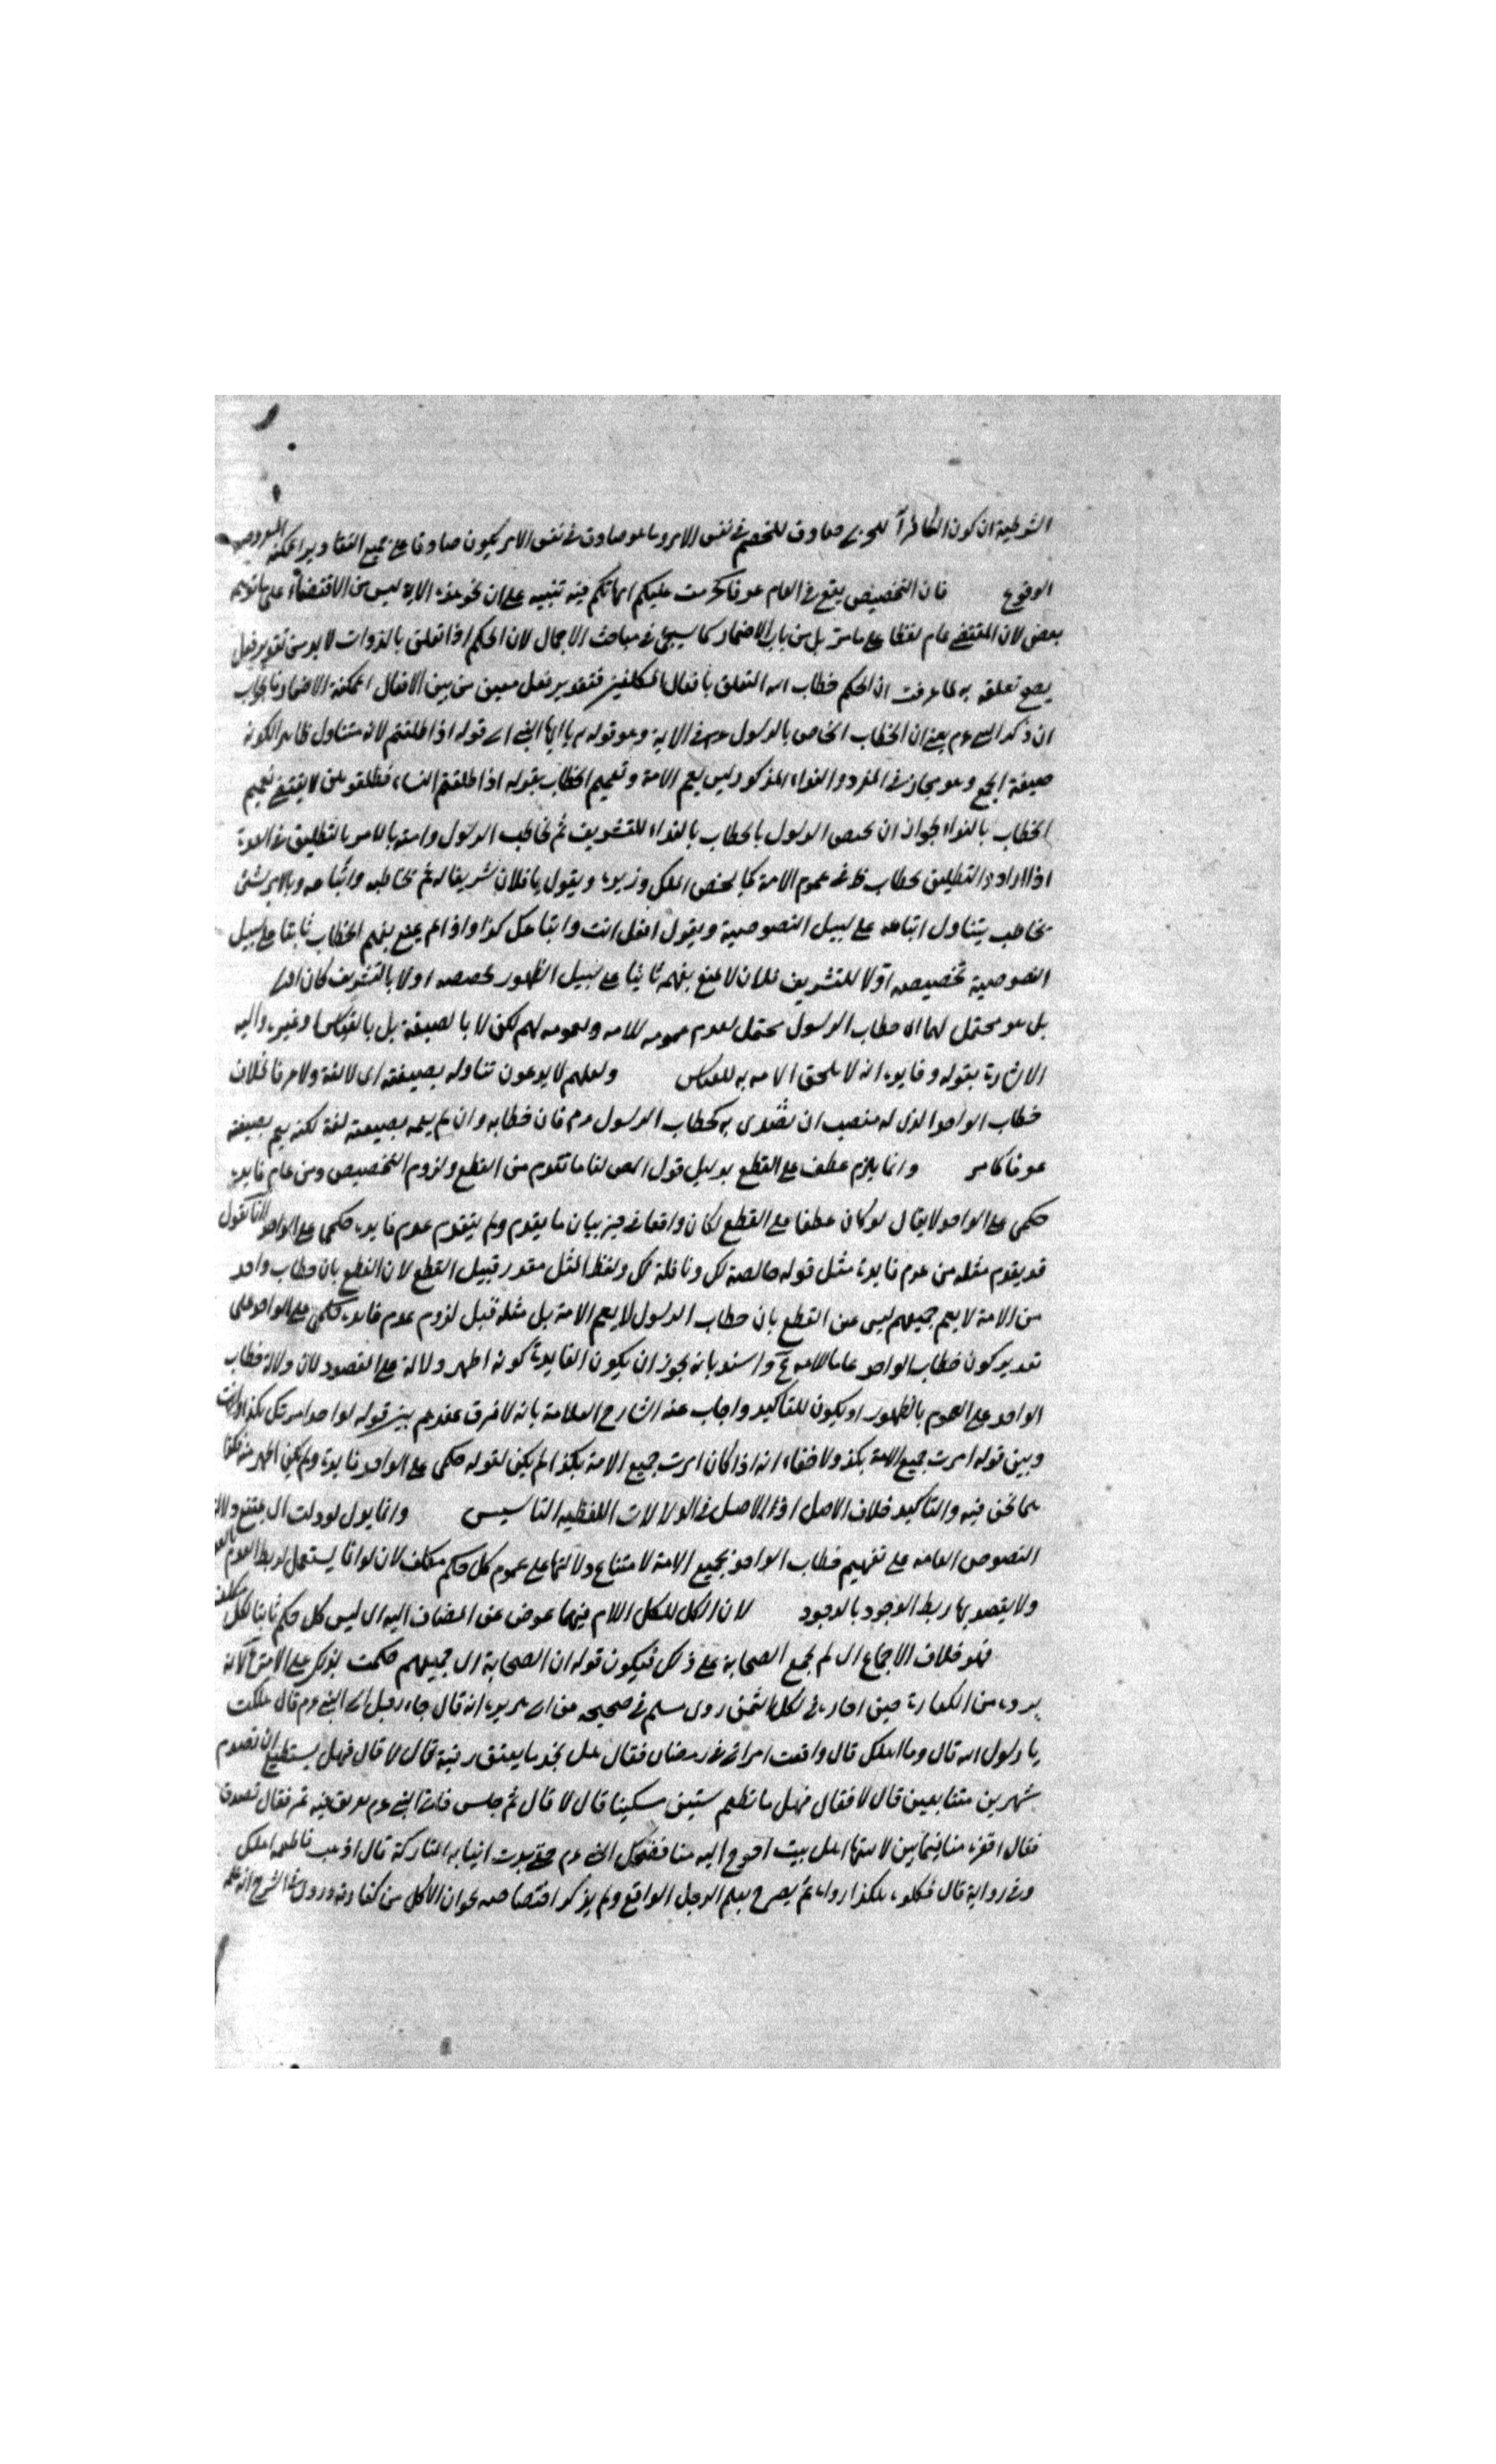 الشرطية ان كون الكافر للحربي صادق للخصم في نفس الامر وما هو صادق في نفس الامر يكون صادقا على جميع التقادير الممكنة
الوقوع فان التخصيص يقع في العام عرفا كحرمت عليكم امهاتكم فيه تنبيه على ان نحو هذه الاية ليس من الاقتضاء على ما توهم
بعض لان المقتضى عام لفظا على ما مر بل من باب الاضمار كما سيجئ في مباحث الاجمال لان الحكم اذا تعلق بالذوات لا بد من تقدير فعل
يصح تعلقه به لما عرفت ان الحكم خطاب الله المتعلق بافعال المكلفين فتقدير فعل معين من بين الافعال الممكنة الاضمار
ان ذكر النبي عم يعني ان الخطاب الخاص بالرسول عم في الاية وهو قوله يا ايها النبي اي قوله اذا طلقتم لانه متناول ظاهرا لكونه
صيغة الجمع وهو مجاز في المفرد والنداء المذكور ليس يعم الامة وتعميم الخطاب بقوله اذا طلقتم النساء فطلقوهن لا يقتضي تعميم
الخطاب بالنداء لجواز ان يخص الرسول بالخطاب بالنداء للتشريف ثم يخاطب الرسول وامته بالامر بالتطليق في العدة
اذا ارادوا التطليق بخطاب ظ في عموم الامة كما يخص الملك وزيره ويقول يا فلان تشريفا له ثم يخاطبه واتباعه وبالامر بشئ
بخاطب يتناول اتباعه على سبيل النصوصية ويقول افعل انت واتباعك كذا واذا لم يمنع بفهم الخطاب ثابتا على سبيل
النصوصية تخصيصه اولا للتشريف فلان لا يمنع بفهمه ثانيا على سبيل الظهور تخصصه اولا بالتشريف كان اولى
بل هو محتمل لهما اي خطاب الرسول محتمل لعدم عمومه للامة ولعمومه لهم لكن لا بالصيغة بل بالقياس وغيره واليه
الاشارة بقوله وفايدة ان لا يلحق الامة به للقياس ولعلهم لا يدعون تناوله بصيغته اي لا لغة ولا عرفا بخلاف
خطاب الواحد الذي له منصب ان يقتدى به كخطاب الرسول عم فان خطابه وان لم يعمه بصيغته لغة لكنه يعم بصيغته
عرفا كما مر وانما يلزم عطف على القطع بدليل قول المص لنا ما تقدم من القطع ولزوم التخصيص ومن عدم فايدة
حكمي على الواحد لا يقال لو كان عطفا على القطع لكان واقعا في حيز بيان ما يقدم ولم يتقدم عدم فايدة حكمي على الواحد لانا نقول
قد يقدم مثله من عدم فايدة مثل قوله خالصة لك ونافلة لك ولفظ المثل مقدر قبيل القطع لان القطع بان خطاب واحد
من الامة لا يعم جميعهم ليس عين القطع بان خطاب الرسول لا يعم الامة بل مثله قبل لزوم عدم فايدة حكمي على الواحد على
تقدير كون خطاب الواحد عاما للامة م واسند بانه يجوز ان يكون الفايدة كونه اظهر دلالة على المقصود لان دلالة خطاب
الواحد على العموم بالظهور او يكون للتاكيد واجاب عنه الشارح العلامة بانه لا فرق عندهم بين قوله لواحد امرتك بكذا
وبين قوله امرت جميع الامة بكذا ولا خفاء انه اذا كان امرت جميع الامة بكذا لم يكن لقوله حكمي على الواحد فايدة ولم يكن اظهر منه فكذا
بما نحن فيه والتاكيد خلاف الاصل اذ الاصل في الدلالات اللفظية التاسيس وانما يدل لو دلت اي يمتنع دلالة
النصوص العامة على تفهيم خطاب الواحد بجميع الامة لامتناع دلالتها على عموم كل حكم مكلف لان لو انما يستعمل لربط العدم بالعدم
ولا يقصد بها ربط الوجود بالوجود لان الكل للكل اللام فيهما عوض عن المضاف اليه اي ليس كل حكم ثابتا لكل مكلف
فهو خلاف الاجماع اي لم يجمع الصحابة على ذلك فيكون قوله ان الصحابة اي جميعهم حكمت بذلك على الامة
بردة من الكفارة حين اجاز في لكل الثمن روى مسلم في صحيحه عن ابي هريرة انه قال جاء رجل الى النبي عم قال هلكت
يا رسول الله قال وما اهلك قال واقعت امراتي في رمضان فقال هل تجد ما يعتق رقبة قال لا قال فهل يستطيع ان تصوم
شهرين متتابعين قال لا فقال فهل ما تطعم ستين مسكينا قال لا قال ثم جلس فاتي النبي عم بعرق فيه تمر فقال تصدق
فقال افقر منا فيما بين لابتيها اهل بيت احوج اليه منا فضحك النبي عم حتى بدت انيابه المتاركة قال اذهب فاطعمه اهلك
وفي رواية قال فكلوه هكذا رواه ثم يصرح بعلم الرجل الواقع ولم يذكر اختصاصه بجواز الاكل من كفارته وروى